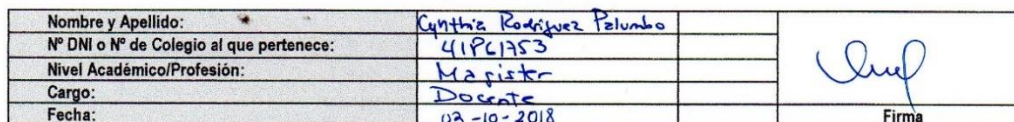 Nombre y Apellido: Cynthia Rodriguez Palumbo
Nº DNI o Nº de Colegio al que pertenece:
Nivel Académico/Profesión: Magister
Cargo: Docente
Fecha: 02-10-2018
Firma